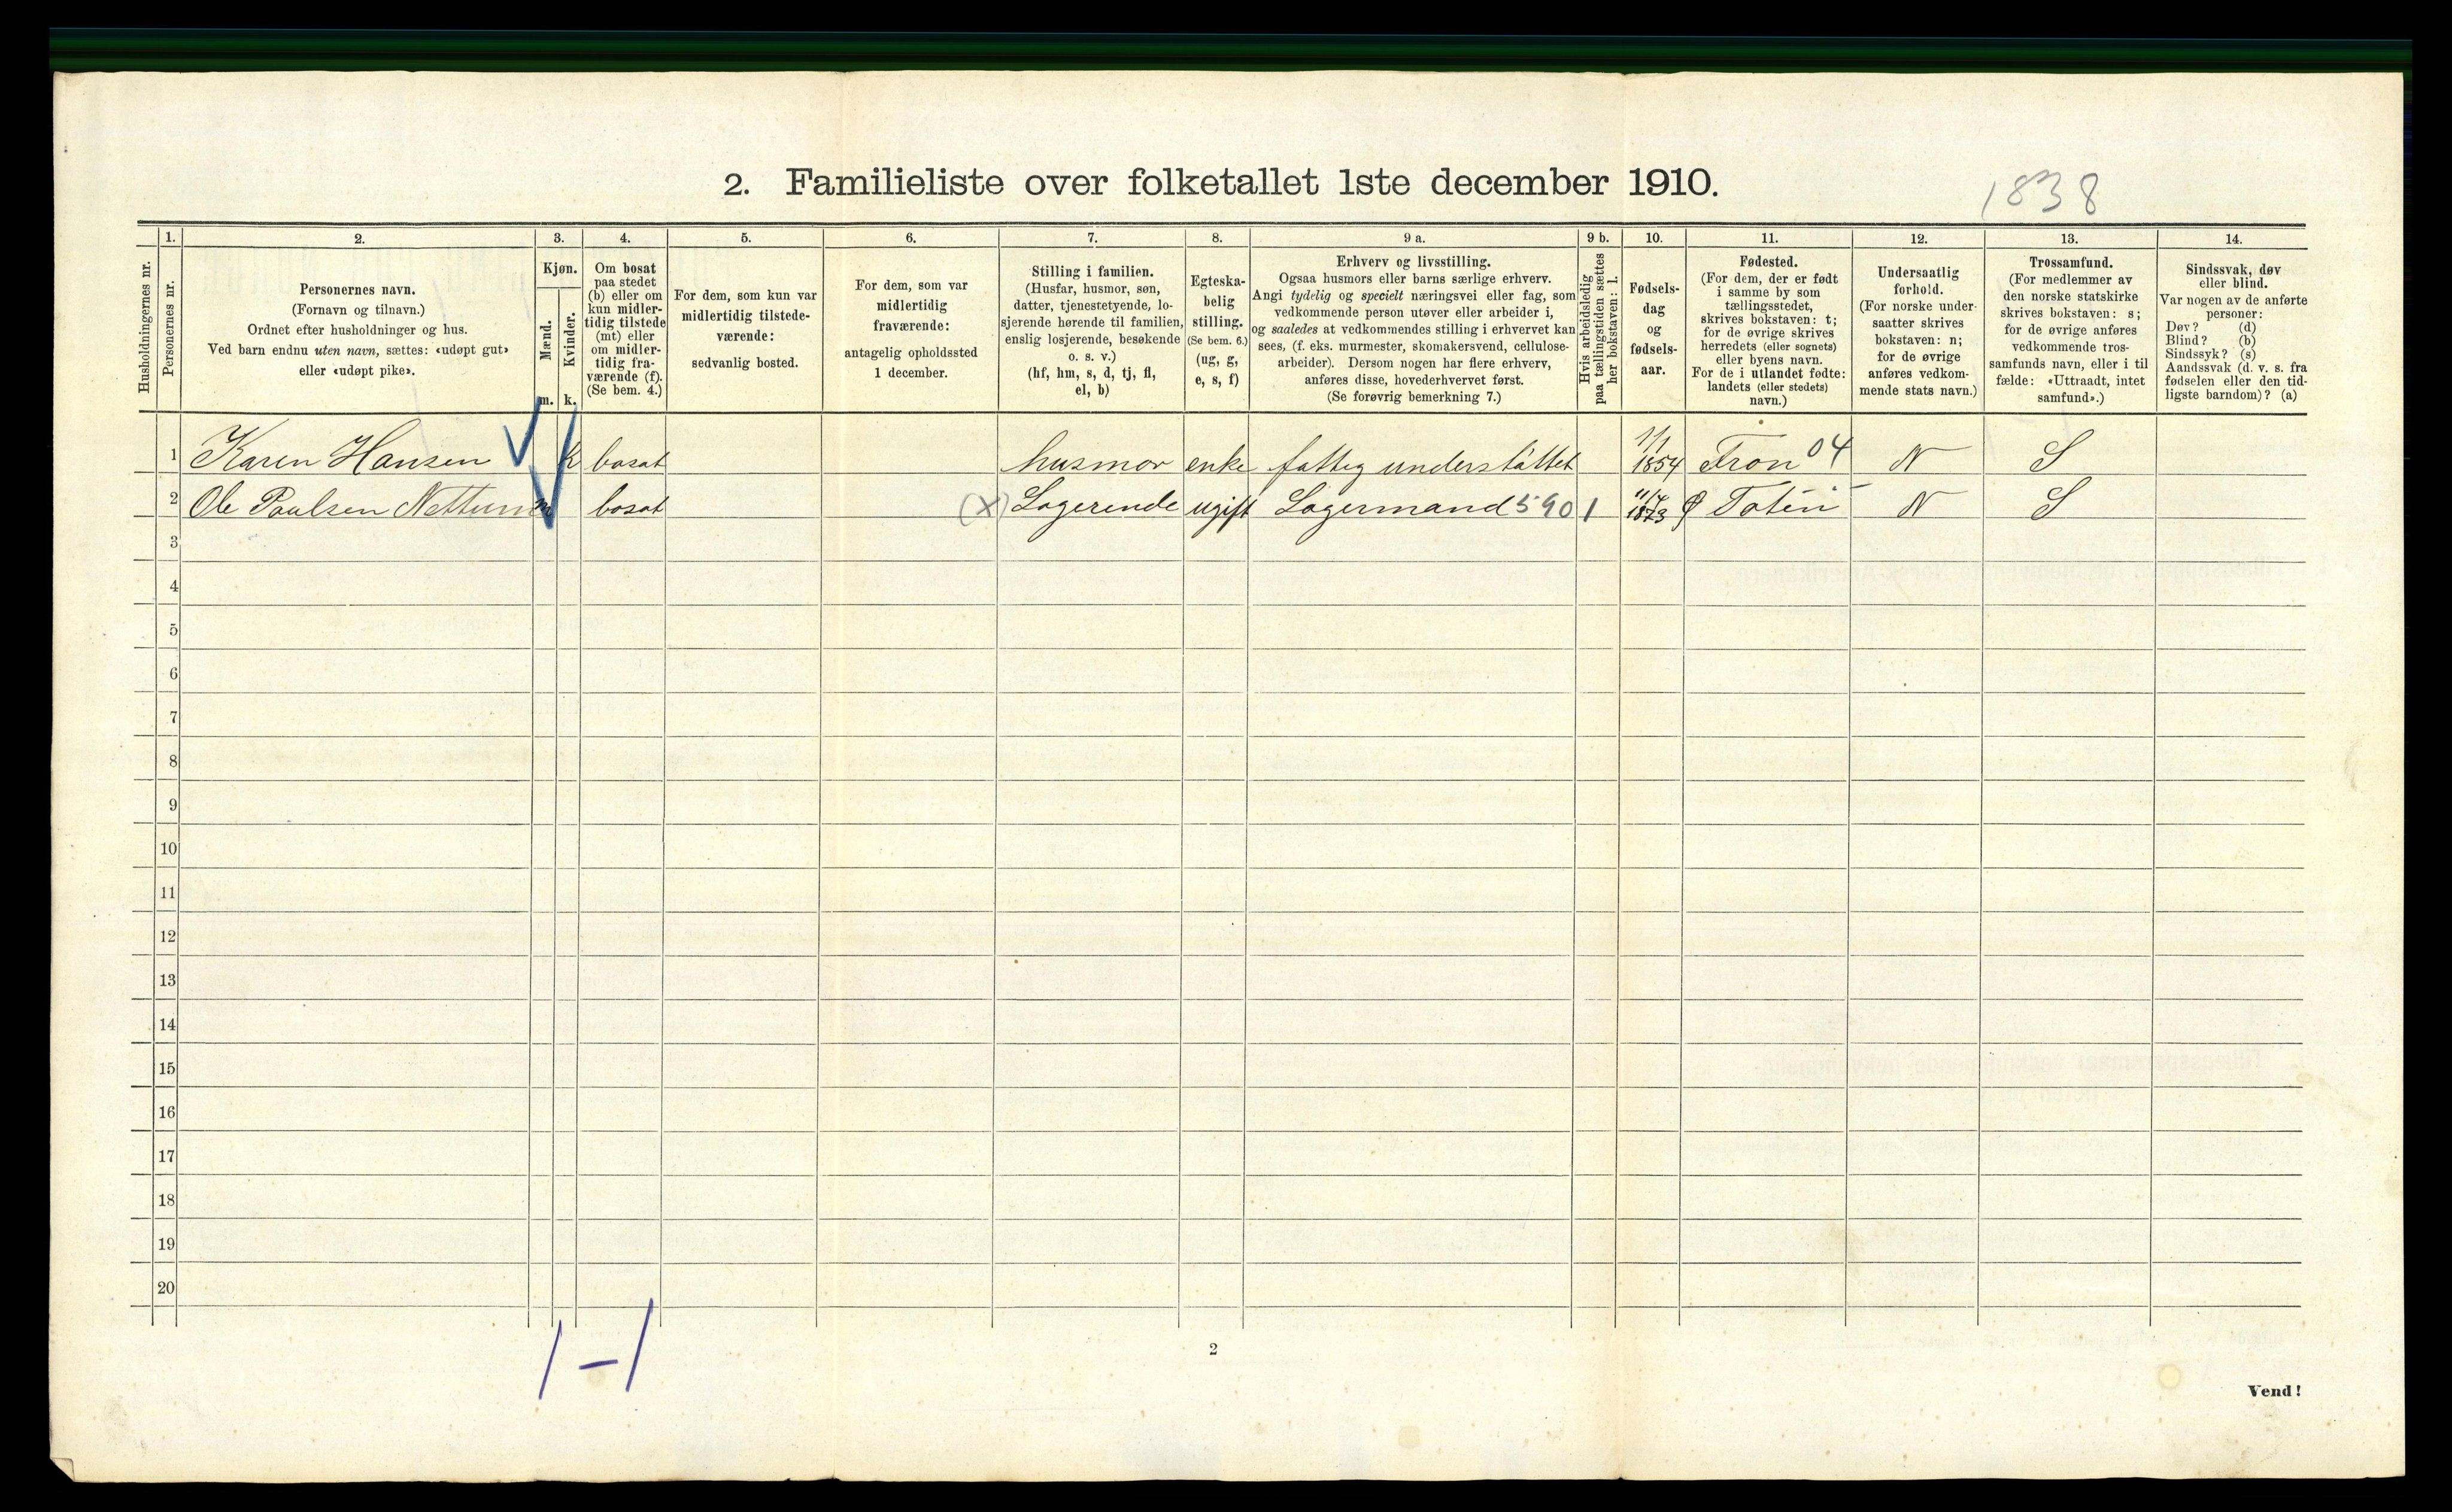 2. Familieliste over folketallet 1ste december 1910.
1838
1. 2. 3. 4. 5. 6. 7. 8. 9 a. 9 b. 10. 11. 12. 13. 14.
Husholdningernes nr.
Personernes nr.
Personernes navn.
(Fornavn og tilnavn.)
Ordnet efter husholdninger og hus.
Ved barn endnu uten navn, sættes: «udøpt gut»
eller «udøpt pike».
Kjøn.
Mænd.
Kvinder.
m. k.
Om bosat
paa stedet
(b) eller om
kun midler-
tidig tilstede
(mt) eller
om midler-
tidig fra-
værende (f).
(Se bem. 4.)
For dem, som kun var
midlertidig tilstede-
værende:
sedvanlig bosted.
For dem, som var
midlertidig
fraværende:
antagelig opholdssted
1 december.
Stilling i familien.
(Husfar, husmor, søn,
datter, tjenestetyende, lo-
sjerende hørende til familien,
enslig losjerende, besøkende
o. s. v.)
(hf, hm, s, d, tj, fl,
el, b)
Egteska-
belig
stilling.
(Se bem. 6.)
(ug, g,
e, s, f)
Erhverv og livsstilling.
Ogsaa husmors eller barns særlige erhverv.
Angi tydelig og specielt næringsvei eller fag, som
vedkommende person utøver eller arbeider i,
og saaledes at vedkommendes stilling i erhvervet kan
sees, (f. eks. murmester, skomakersvend, cellulose-
arbeider). Dersom nogen har flere erhverv,
anføres disse, hovederhvervet først.
(Se forøvrig bemerkning 7.)
Hvis arbeidsledig
paa tællingstiden sættes
her bokstaven: l.
Fødsels-
dag
og
fødsels-
aar.
Fødested.
(For dem, der er født
i samme by som
tællingsstedet,
skrives bokstaven: t;
for de øvrige skrives
herredets (eller sognets)
eller byens navn.
For de i utlandet fødte:
landets (eller stedets)
navn.)
Undersaatlig
forhold.
(For norske under-
saatter skrives
bokstaven: n;
for de øvrige
anføres vedkom-
mende stats navn.)
Trossamfund.
(For medlemmer av
den norske statskirke
skrives bokstaven: s;
for de øvrige anføres
vedkommende tros-
samfunds navn, eller i til
fælde: «Uttraadt, intet
samfund».)
Sindssvak, døv
eller blind.
Var nogen av de anførte
personer:
Døv? (d)
Blind? (b)
Sindssyk? (s)
Aandssvak (d. v. s. fra
fødselen eller den tid-
ligste barndom)? (a)
1 Karen Hansen k bosat husmor enke fattig understøttet 1/1 1854 Fron 04 N S
2 Ole Paulsen Nettum m bosat (X) Logerende ugift Lagermand 590 1 11/4 1873 Ø Toten N S
3
4
5
6
7
8
9
10
11
12
13
14
15
16
17
18
19
20
1-1
2
Vend!